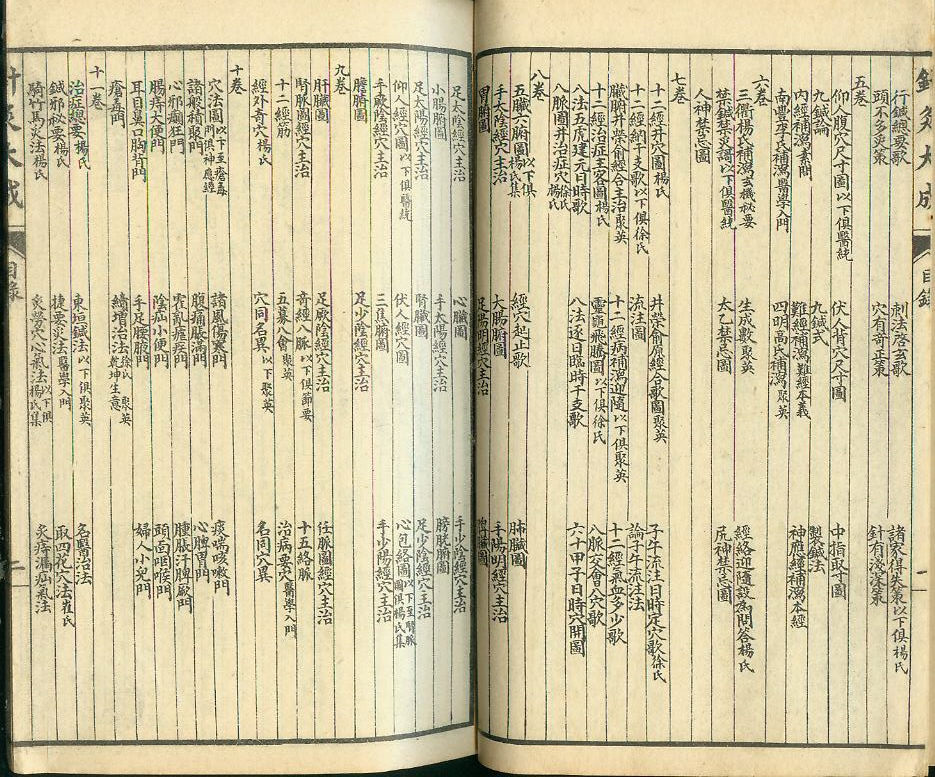 鍼灸大成 目錄 一
行鍼總要歌 刺法啓玄歌 諸家得失策以下俱楊氏
頭不多灸策 穴有奇正策 針有淺深策
五卷
仰人腹穴尺寸圖以下俱醫統 伏人背穴尺寸圖 中指取寸圖
九鍼論 九鍼式 製鍼法
內經補瀉素問 難經補瀉難經本義 神應經補瀉本經
南豐李氏補瀉醫學入門 四明高氏補瀉聚英
六卷
三衢楊氏補瀉玄機秘要 生成數聚英 經絡迎隨設為問答楊氏
禁鍼禁灸謌以下俱醫統 太乙禁忌圖 尻神禁忌圖
人神禁忌圖
七卷
十二經井穴圖楊氏 井滎俞原經合歌圖聚英 子午流注日時定穴歌徐氏
十二經納干支歌以下俱徐氏 流注圖 論子午流注法
臟腑井滎俞經合主治聚英 十二經病補瀉迎隨以下俱聚英 十二經氣血多少歌
十二經治症主客圖楊氏 靈龜飛騰圖以下俱徐氏 八脈交會八穴歌
八法五虎建元日時歌 八法逐日臨時干支歌 六十甲子日時穴開圖
八脈圖并治症穴徐氏楊氏
八卷
五臟六腑圖以下俱楊氏集 經穴起止歌 肺臟圖
手太陰經穴主治 大腸腑圖 手陽明經穴主治
胃腑圖 足陽明經穴主治 脾臟圖
足太陰經穴主治 心臟圖 手少陰經穴主治
小腸腑圖 手太陽經穴主治 膀胱腑圖
足太陽經穴主治 腎臟圖 足少陰經穴主治
仰人經穴圖以下俱醫統 伏人經穴圖 心包絡圖以下至腎脈圖俱楊氏集
手厥陰經穴主治 三焦腑圖 手少陽經穴主治
膽腑圖 足少陽經穴主治
九卷
肝臟圖 足厥陰經穴主治 任脈圖經穴主治
腎脈圖經穴主治 奇經八脈以下俱節要 十五絡脈
十二經筋 五募八會聚英 治病要穴醫學入門
經外奇穴楊氏 穴同名異以下聚英 名同穴異
十卷
穴法圖以下至瘡毒門俱神應經 諸風傷寒門 痰喘咳嗽門
諸般積聚門 腹痛脹滿門 心脾胃門
心邪癲狂門 霍亂瘧疾門 腫脹汗脾厥門
腸痔大便門 陰疝小便門 頭面咽喉門
耳目鼻口胸背門 手足腰腋門 婦人小兒門
瘡毒門 續增治法徐氏聚英乾坤生意
十一卷
治症總要楊氏 東垣鍼法以下俱聚英 名醫治法
鍼邪祕要楊氏 捷要灸法醫學入門 取四花穴法崔氏
騎竹馬灸法楊氏 灸勞穴心氣法以下俱楊氏集 灸痔漏疝氣法
針灸大成 目錄 二